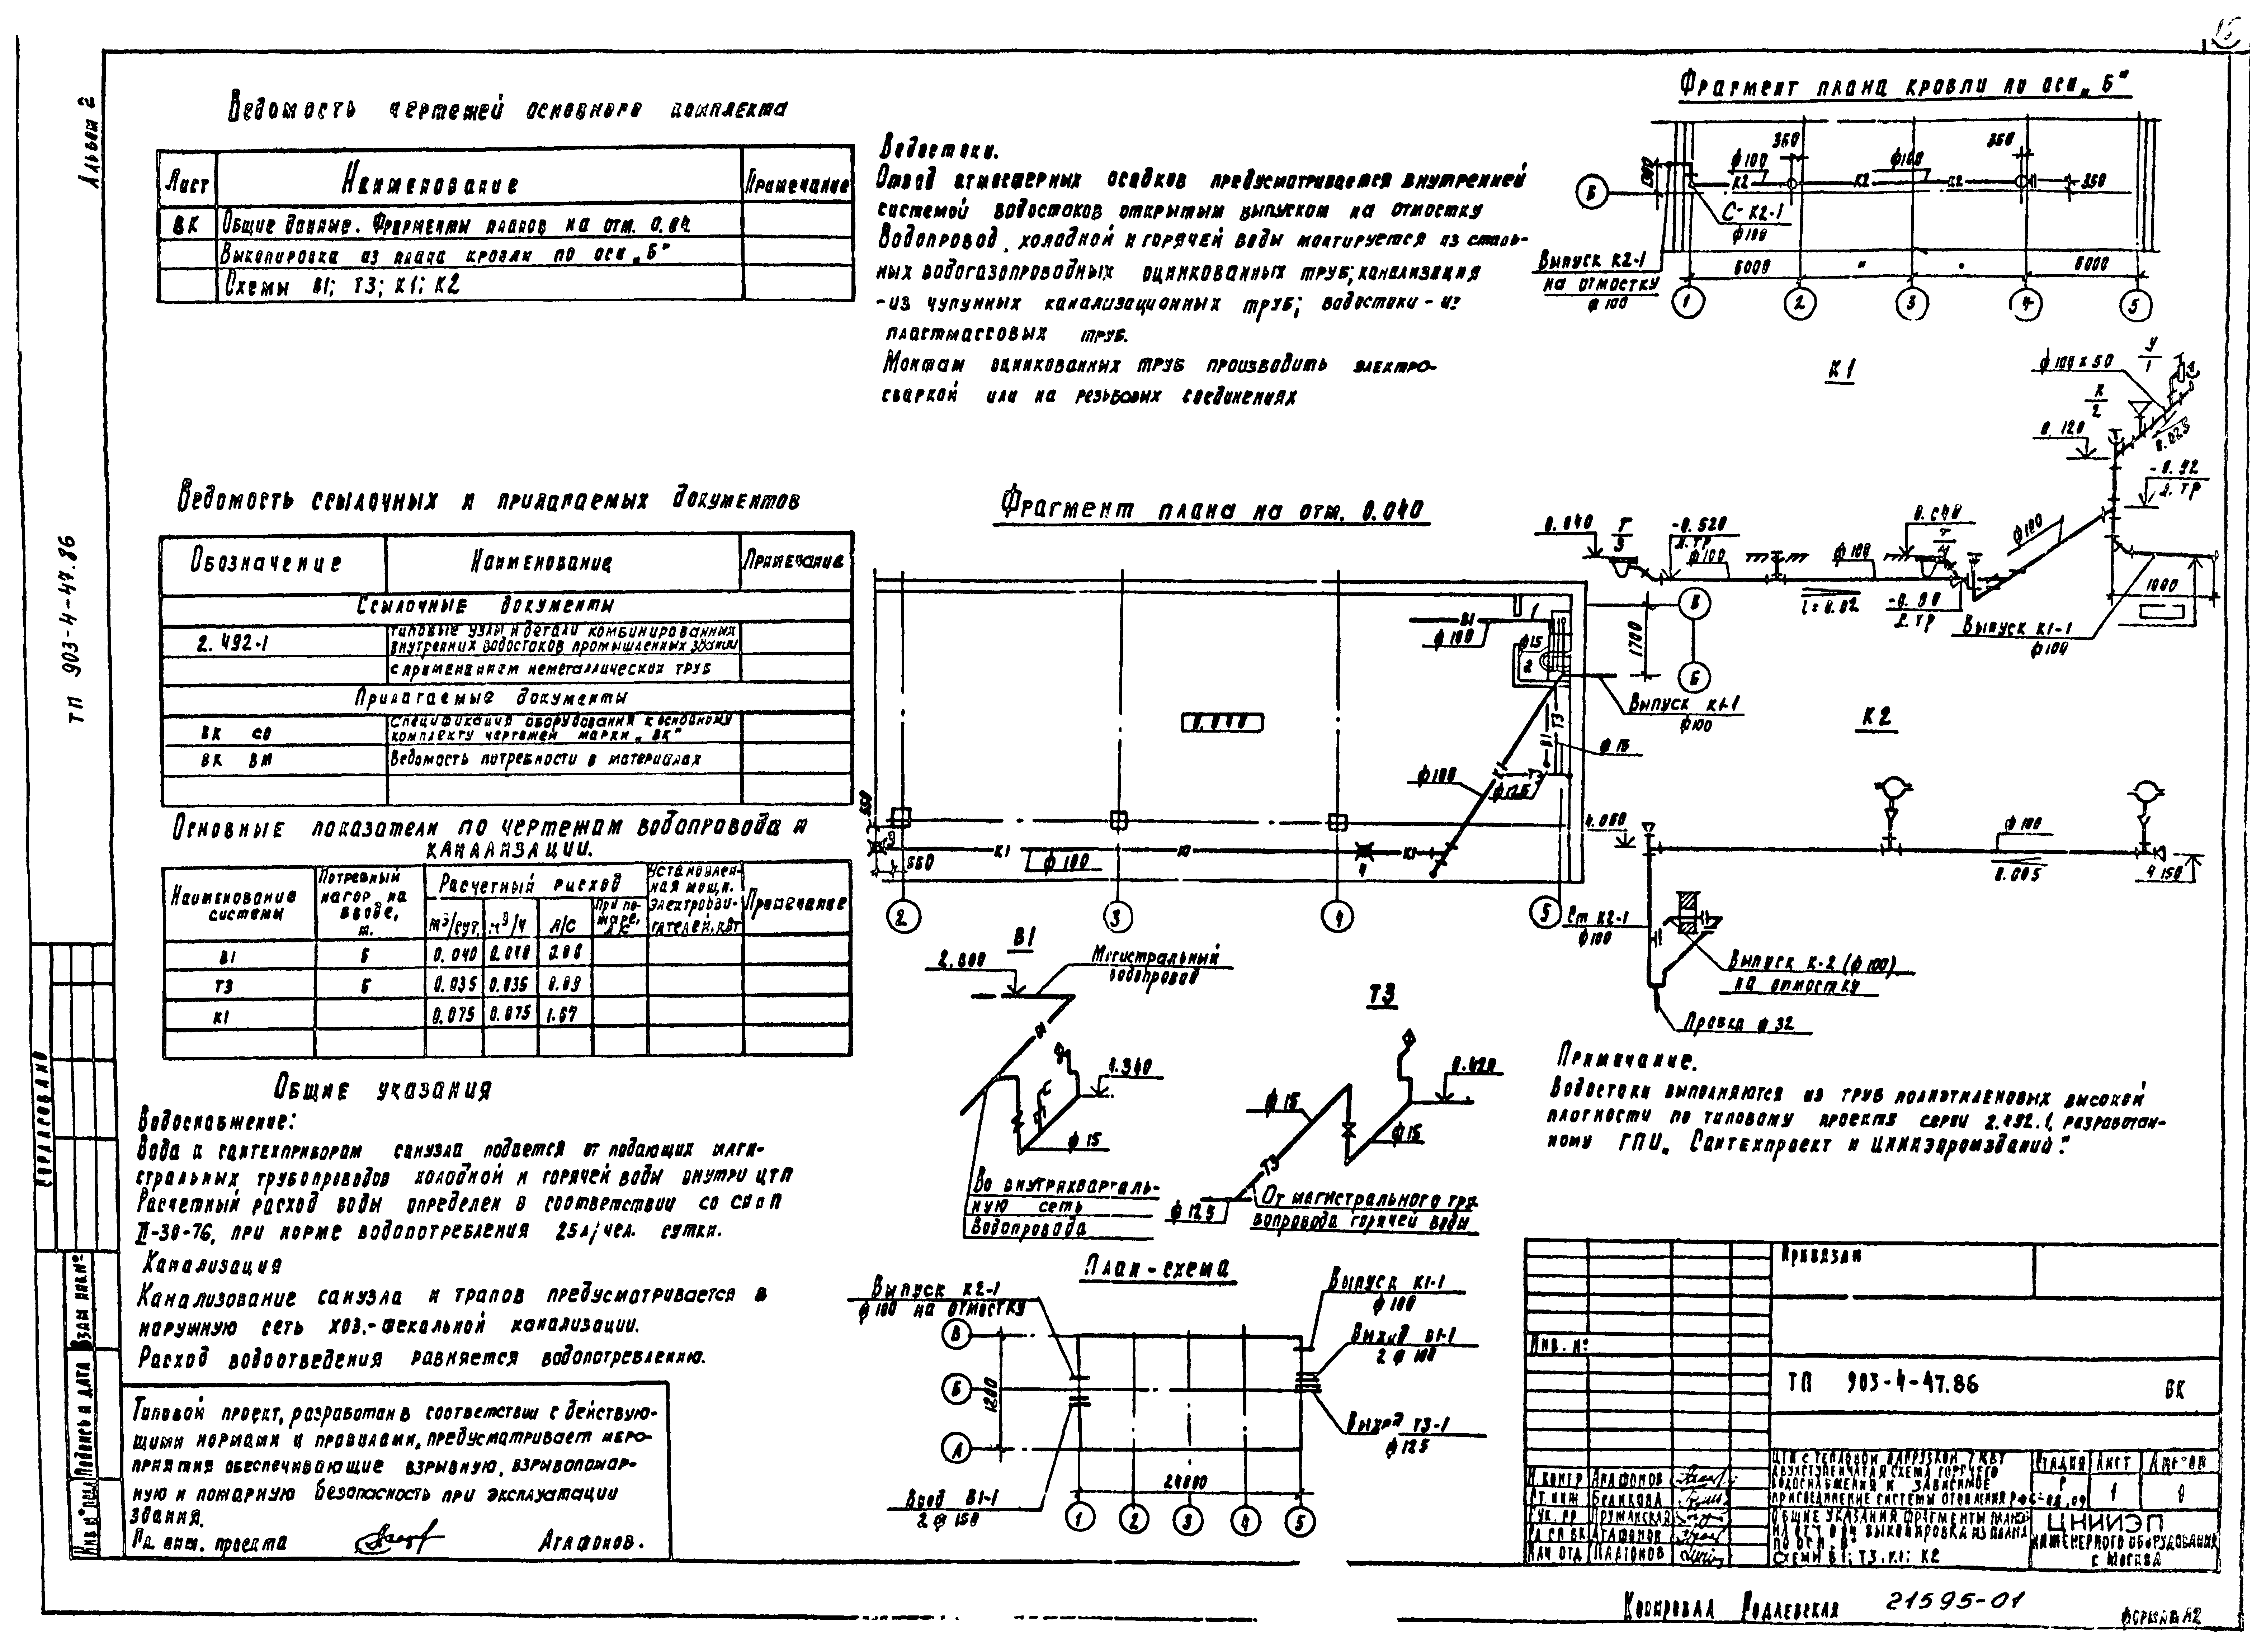 Альбом 2
ТП 903-4-47.86
Ведомость чертежей основного комплекта
Лист Наименование Примечание
ВК Общие данные. Фрагменты планов на отм. 0.04
Выкопировка из плана кровли по оси „Б"
Схемы В1; Т3; К1; К2
Ведомость ссылочных и прилагаемых документов
Обозначение Наименование Примечание
Ссылочные документы
2.492-1 Типовые узлы и детали комбинированных
внутренних водостоков промышленных зданий
с применением неметаллических труб
Прилагаемые документы
ВК СО Спецификация оборудования к основному
комплекту чертежей марки „ВК"
ВК ВМ Ведомость потребности в материалах
Основные показатели по чертежам водопровода и
канализации.
Наименование системы
Потребный напор на вводе, м.
Расчетный расход
м³/сут. м³/ч Л/С При пожаре, л/с
Установленная мощн. электродвигателей, кВт
Примечание
В1 5 0.040 0.040
Т3 5 0.035 0.035 0.09
К1 0.075 0.075 1.67
Общие указания
Водоснабжение:
Вода к сантехприборам санузла подается от подающих маги-
стральных трубопроводов холодной и горячей воды внутри ЦТП
Расчетный расход воды определен в соответствии со СНиП
II-30-76, при норме водопотребления 25л/чел. сутки.
Канализация
Канализование санузла и трапов предусматривается в
наружную сеть хоз.-фекальной канализации.
Расход водоотведения равняется водопотреблению.
Типовой проект, разработан в соответствии с действую-
щими нормами и правилами, предусматривает меро-
приятия обеспечивающие взрывную, взрывопожар-
ную и пожарную безопасность при эксплуатации
здания.
Гл. инж. проекта Агафонов.
Водостоки.
Отвод атмосферных осадков предусматривается внутренней
системой водостоков открытым выпуском на отмостку
Водопровод, холодной и горячей воды монтируется из сталь-
ных водогазопроводных оцинкованных труб; канализация
-из чугунных канализационных труб; водостоки - из
пластмассовых труб.
Монтаж оцинкованных труб производить электро-
сваркой или на резьбовых соединениях
Фрагмент плана на отм. 0.040
В1
ф100
1
ф15
2
В
Б
1700
Выпуск К1-1
ф100
0.040
Т3
В1
ф15
К1
Т3
ф100
ф125
550
550
К1
ф100
К1
4
К1
2 3 4 5
Фрагмент плана кровли по оси „Б"
350
350
ф100
ф100
К2 К2 К2
350
Б
С- К2-1
ф100
Выпуск К2-1
на отмостку
ф100
6000 " " 6000
1 2 3 4 5
К1
ф100х50
У
1
К
2
0.025
0.120
-0.92
Л.ТР
0.040
Т
3
-0.520
Л.ТР
ф100
ф100
0.040
Т
4
ф100
i=0.02
-0.80
Л.ТР
1000
Выпуск К1-1
ф100
К2
4.000
ф100
0.005
4.150
Ст К2-1
ф100
Выпуск К-2 (ф100)
на отмостку
Пробка ф32
В1
Магистральный
водопровод
В1
0.340
ф15
Во внутрикварталь-
ную сеть
водопровода
Т3
0.420
ф15
ф15
Т3
ф125
От магистрального тру-
бопровода горячей воды
Примечание.
Водостоки выполняются из труб полиэтиленовых высокой
плотности по типовому проекту серии 2.492.1, разработан-
ному ГПИ „Сантехпроект и ЦНИИЭпромзданий".
План-схема
Выпуск К2-1
ф100 на отмостку
Выпуск К1-1
ф100
Выход В1-1
2 ф100
Выход Т3-1
ф125
Ввод В1-1
2 ф150
В
Б
А
1200
24000
1 2 3 4 5
Привязан
Инв. №
ТП 903-4-47.86 ВК
Н.контр Агафонов
Ст. инж Беликова
Рук. гр Пружанская
Гл.сп.ВК Агафонов
Нач. отд Платонов
ЦТП с тепловой нагрузкой 7 МВт
Двухступенчатая схема горячего
водоснабжения и зависимое
присоединение системы отопления
Стадия Лист Листов
Р 1
Общие указания фрагменты плана
на отм 0.04 выкопировка из плана
по оси „Б"
Схемы В1; Т3; К1; К2
ЦНИИЭП
инженерного оборудования
г. Москва
Согласовано
Взам инв №
Подпись и дата
Инв № подл
Копировал Родлевская 21595-01
Формат А2